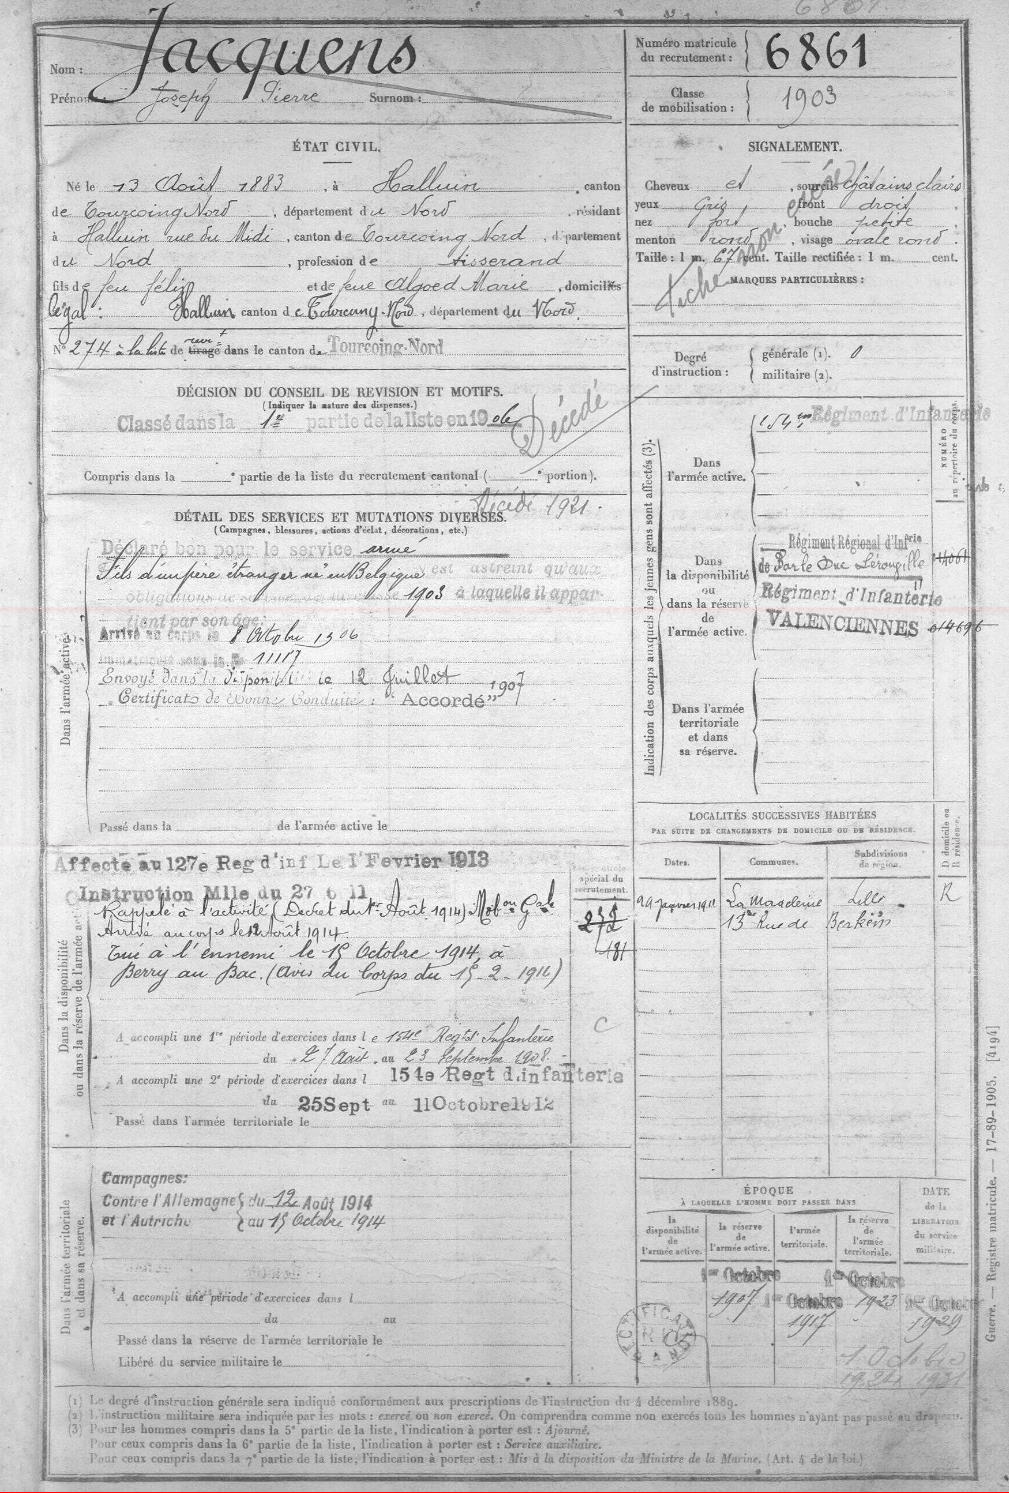 Nom : Jacquens
Prénoms Joseph Pierre Surnom :
Numéro matricule du recrutement : 6861
Classe de mobilisation : 1903
ÉTAT CIVIL.
Né le 13 Août 1883, à Halluin, canton
de Tourcoing Nord, département du Nord, résidant
à Halluin rue du Midi, canton de Tourcoing Nord, département
du Nord, profession de tisserand
fils de feu félix et de feue Algoed Marie, domiciliés
légal : Halluin canton de Tourcoing-Nord, département du Nord.
N° 274 à la liste de tirage dans le canton de Tourcoing-Nord
SIGNALEMENT.
Cheveux et, sourcils châtains clairs
yeux Gris, front droit,
nez fort, bouche petite
menton rond, visage ovale rond.
Taille : 1 m. 67 cent. Taille rectifiée : 1 m. cent.
MARQUES PARTICULIÈRES :
fiche non
Degré d'instruction : générale (1). 0
militaire (2).
DÉCISION DU CONSEIL DE REVISION ET MOTIFS.
(Indiquer la nature des dispenses.)
Classé dans la 1re partie de la liste en 1906
Décédé
Compris dans la ° partie de la liste du recrutement cantonal ( ° portion).
Décédé 1921.
DÉTAIL DES SERVICES ET MUTATIONS DIVERSES.
(Campagnes, blessures, actions d'éclat, décorations, etc.)
Dans l'armée active.
Déclaré bon pour le service armé
Fils d'un père étranger né en Belgique n'est astreint qu'aux
obligations de service de la classe 1903 à laquelle il appar-
tient par son âge.
Arrivé au corps le 8 Octobre 1906
Immatriculé sous le N° 11117
Envoyé dans la disponibilité le 12 Juillet 1907
Certificat de Bonne Conduite : "Accordé"
Passé dans la de l'armée active le
Indication des corps auxquels les jeunes gens sont affectés (3).
NUMÉRO au répertoire du corps.
Dans l'armée active.
154me Régiment d'Infanterie
Dans la disponibilité ou dans la réserve de l'armée active.
Régiment Régional d'Infrie
de Bar le Duc Lérouville
Régiment d'Infanterie
VALENCIENNES
Dans l'armée territoriale et dans sa réserve.
LOCALITÉS SUCCESSIVES HABITÉES
PAR SUITE DE CHANGEMENTS DE DOMICILE OU DE RÉSIDENCE.
D domicile ou R résidence.
Dates. Communes. Subdivisions de région.
29 Janvier 1911 La Madeleine Lille R
13 Rue de Berkem
Dans la disponibilité ou dans la réserve de l'armée active.
Affecté au 127e Reg d'inf Le 1 Fevrier 1913
Instruction Mlle du 27 6 11
spécial du recrutement.
Rappelé à l'activité (Décret du 1er Août 1914) Mobon Gale
Arrivé au corps le 12 août 1914
Tué à l'ennemi le 15 Octobre 1914, à
Berry au Bac. (Avis du Corps du 15-2-1916)
272
181
C
A accompli une 1re période d'exercices dans le 154e Regt d'Infanterie
du 27 Août au 23 Septembre 1908.
A accompli une 2e période d'exercices dans l 154e Regt d.infanterie
du 25 Sept au 11 Octobre 1912
Passé dans l'armée territoriale le
Dans l'armée territoriale et dans sa réserve.
Campagnes:
Contre l'Allemagne du 12 Août 1914
et l'Autriche au 15 Octobre 1914
A accompli une période d'exercices dans l
du au
Passé dans la réserve de l'armée territoriale le
Libéré du service militaire le
ÉPOQUE
À LAQUELLE L'HOMME DOIT PASSER DANS
DATE de la LIBÉRATION du service militaire.
la disponibilité de l'armée active.
la réserve de l'armée active.
l'armée territoriale.
la réserve de l'armée territoriale.
1er Octobre 1907
1er Octobre 1917
1er Octobre 1923
1er Octobre 1929
1 Octobre
1924 1931
RECTIFICATION
(1) Le degré d'instruction générale sera indiqué conformément aux prescriptions de l'instruction du 4 décembre 1889.
(2) L'instruction militaire sera indiquée par les mots : exercé ou non exercé. On comprendra comme non exercés tous les hommes n'ayant pas passé au drapeau.
(3) Pour les hommes compris dans la 5e partie de la liste, l'indication à porter est : Ajourné.
Pour ceux compris dans la 6e partie de la liste, l'indication à porter est : Service auxiliaire.
Pour ceux compris dans la 7e partie de la liste, l'indication à porter est : Mis à la disposition du Ministre de la Marine. (Art. 4 de la loi.)
Guerre. — Registre matricule. — 17-89-1905. [4194]